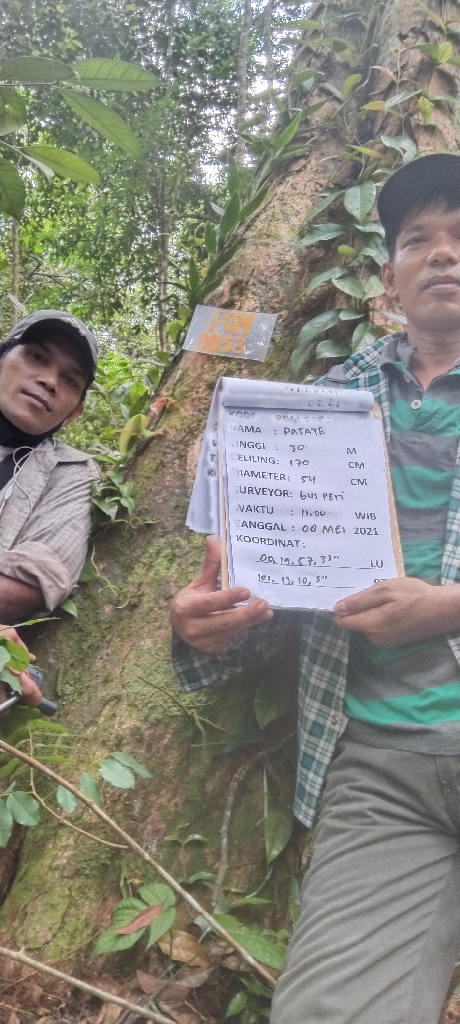 PGM
0053
KODE
NAMA : PATATE
TINGGI : 30 M
KELILING: 170 CM
DIAMETER: 54 CM
SURVEYOR: GUS PERI
WAKTU : 11.00 WIB
TANGGAL : 08 MEI 2021
KOORDINAT :
00, 19, 57, 33" LU
101, 13, 10, 3"